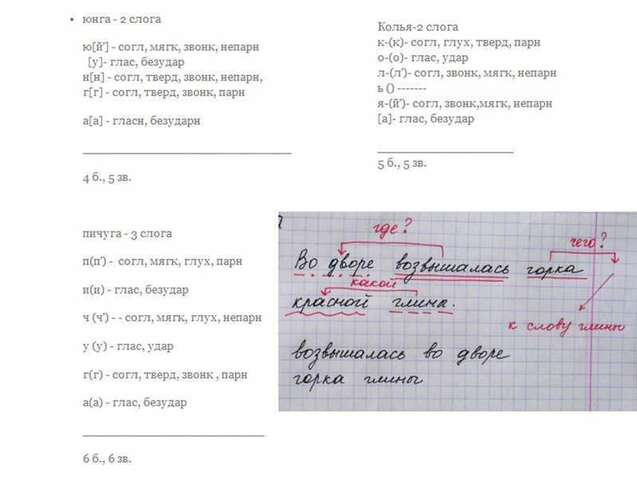 • юнга - 2 слога
ю[й'] - согл, мягк, звонк, непарн
[у]- глас, безудар
н[н] - согл, тверд, звонк, непарн,
г[г] - согл, тверд, звонк, парн
а[а] - гласн, безударн
4 б., 5 зв.
Колья-2 слога
к-(к)- согл, глух, тверд, парн
о-(о)- глас, удар
л-(л')- согл, звонк, мягк, непарн
ь () -------
я-(й')- согл, звонк,мягк, непарн
[а]- глас, безудар
5 б., 5 зв.
пичуга - 3 слога
п(п') - согл, мягк, глух, парн
и(и) - глас, безудар
ч (ч') - - согл, мягк, глух, непарн
у (у) - глас, удар
г(г) - согл, тверд, звонк , парн
а(а) - глас, безудар
6 б., 6 зв.
где?
чего?
Во дворе возвышалась горка
какой
красной глины.
к слову глины
возвышалась во дворе
горка глины